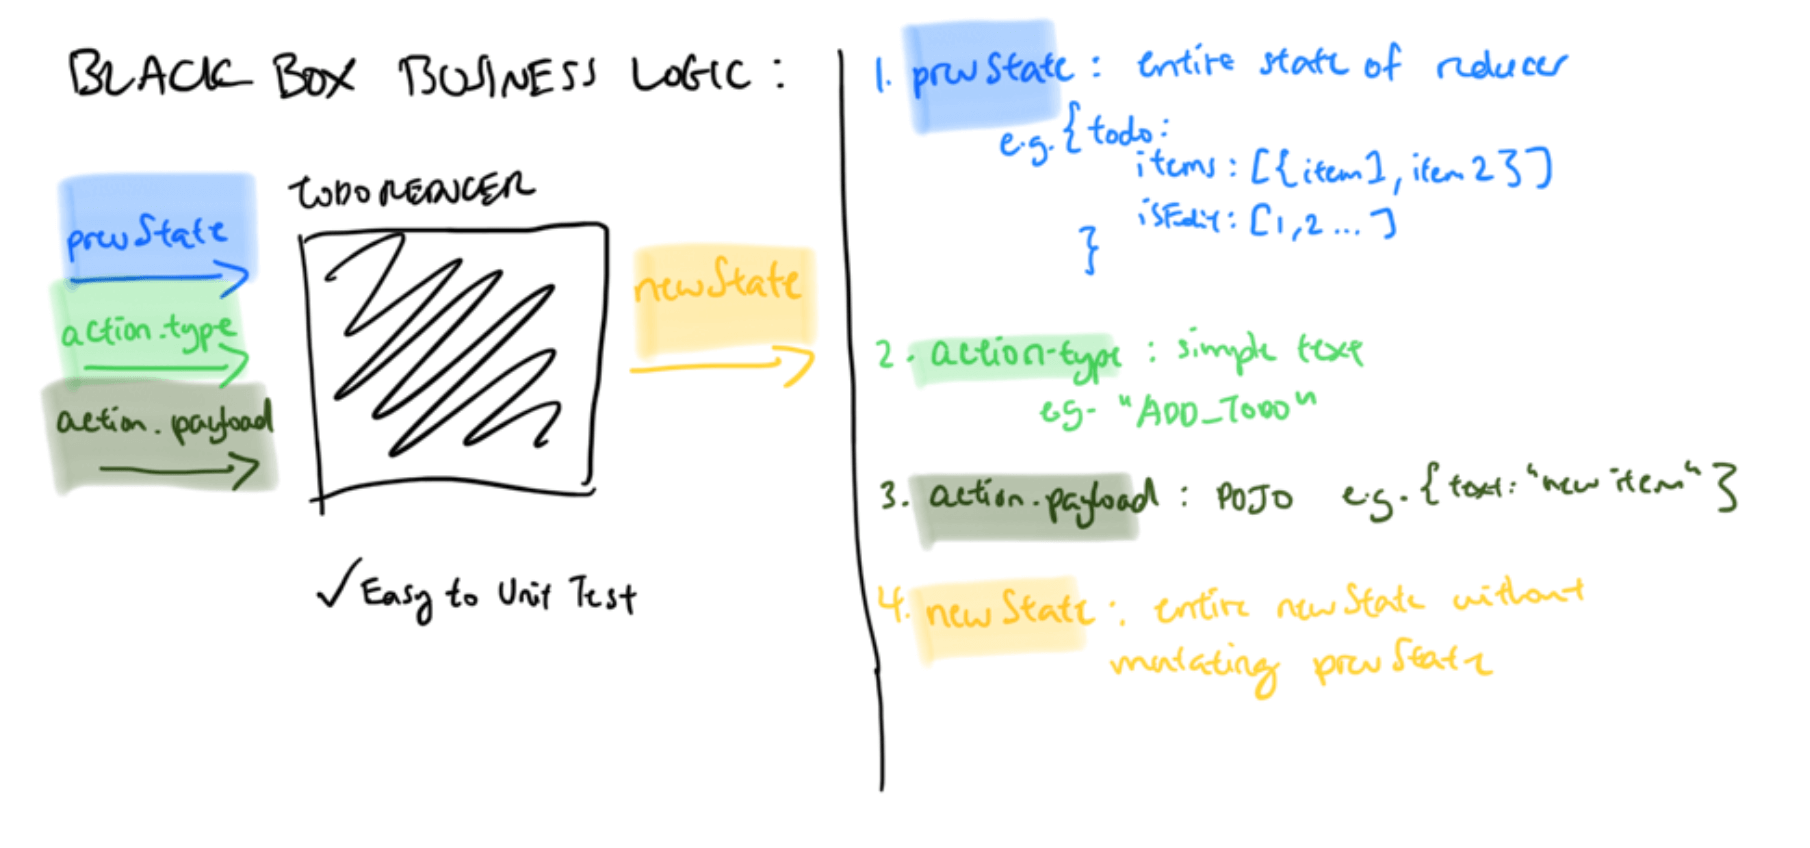 BLACK BOX BUSINESS LOGIC :
TODO REDUCER
prevState
action.type
action.payload
newState
✓ Easy to Unit Test
1. prevState : entire state of reducer
e.g. { todo:
items : [{item1, item 2}]
isEdit: [1,2 ... ]
}
2. action-type : simple text
eg- "ADD_TODO"
3. action.payload : POJO e.g. { text: "new item" }
4. newState : entire newState without
mutating prevState